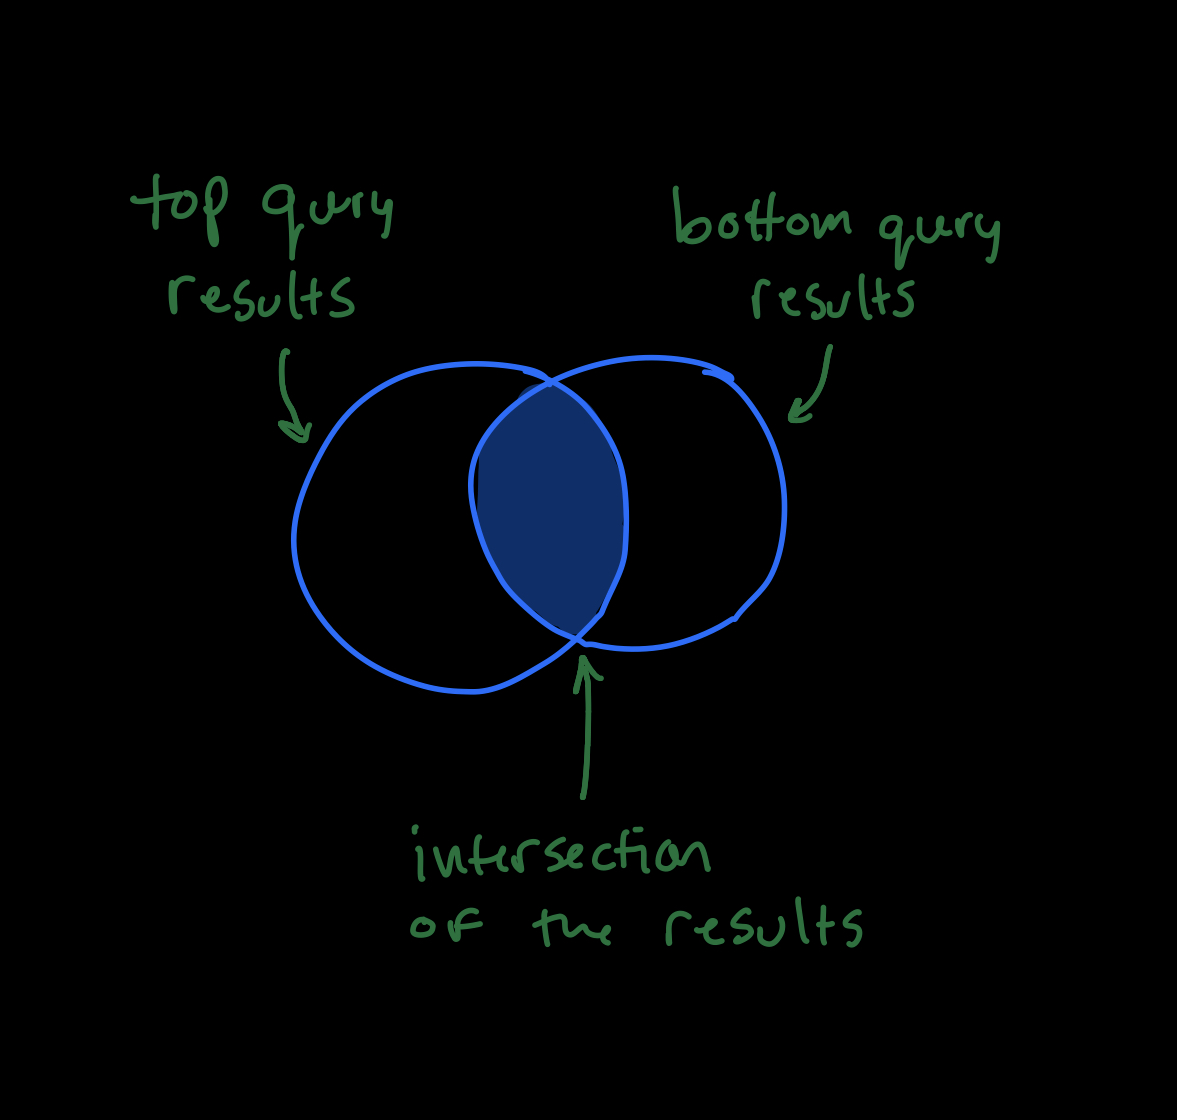 top query
results
bottom query
results
intersection
of the results